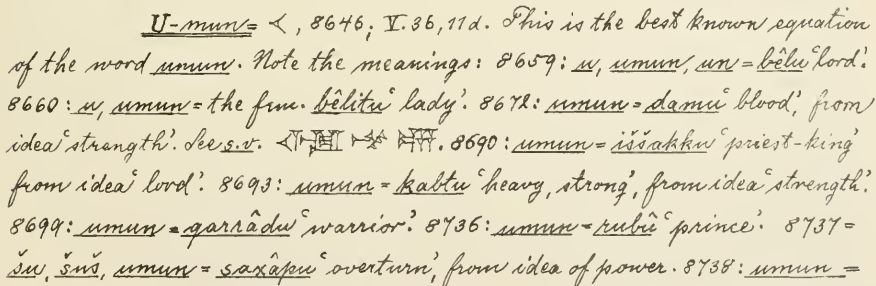 U-mun = 𒌋, 8646; V. 36, 11 d. This is the best known equation
of the word umun. Note the meanings: 8659: u, umun, un = bêlu ‘lord’.
8660: u, umun = the fem. bêlitu ‘lady’. 8672: umun = damu ‘blood’, from
idea ‘strength’. See s.v. 8690: umun = iššakku ‘priest-king’
from idea ‘lord’. 8693: umun = kabtu ‘heavy, strong’, from idea ‘strength’.
8699: umun = qarrâdu ‘warrior’. 8736: umun = rubû ‘prince’. 8737 =
šu, šuš, umun = saxâpu ‘overturn’, from idea of power. 8738: umun =